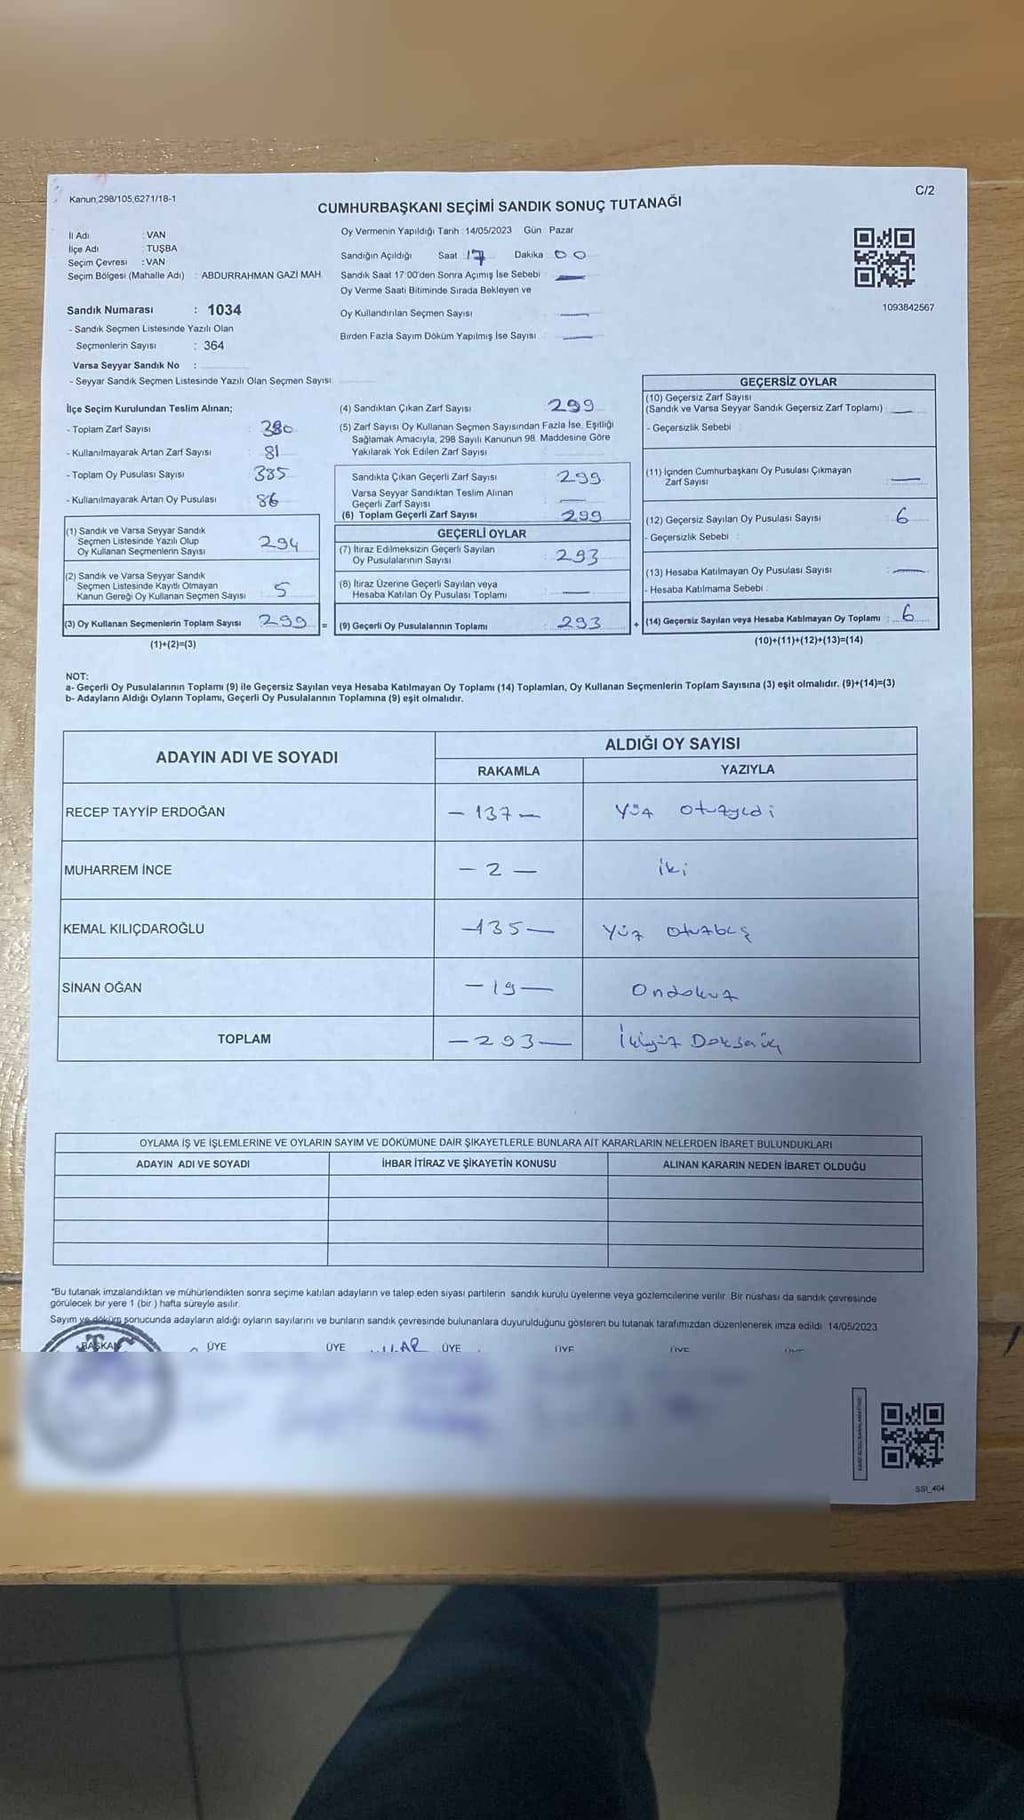 Kanun,298/105,6271/18-1
C/2
CUMHURBAŞKANI SEÇİMİ SANDIK SONUÇ TUTANAĞI
İl Adı : VAN
İlçe Adı : TUŞBA
Seçim Çevresi : VAN
Seçim Bölgesi (Mahalle Adı) : ABDURRAHMAN GAZİ MAH.
Sandık Numarası : 1034
- Sandık Seçmen Listesinde Yazılı Olan
Seçmenlerin Sayısı : 364
Varsa Seyyar Sandık No :
- Seyyar Sandık Seçmen Listesinde Yazılı Olan Seçmen Sayısı
Oy Vermenin Yapıldığı Tarih : 14/05/2023 Gün Pazar
Sandığın Açıldığı Saat 17 Dakika 00
Sandık Saat 17:00'den Sonra Açımış İse Sebebi —
Oy Verme Saati Bitiminde Sırada Bekleyen ve
Oy Kullandırılan Seçmen Sayısı —
Birden Fazla Sayım Döküm Yapılmış İse Sayısı —
1093842567
İlçe Seçim Kurulundan Teslim Alınan;
- Toplam Zarf Sayısı 380
- Kullanılmayarak Artan Zarf Sayısı 81
- Toplam Oy Pusulası Sayısı 385
- Kullanılmayarak Artan Oy Pusulası 86
(1) Sandık ve Varsa Seyyar Sandık
Seçmen Listesinde Yazılı Olup
Oy Kullanan Seçmenlerin Sayısı 294
(2) Sandık ve Varsa Seyyar Sandık
Seçmen Listesinde Kayıtlı Olmayan
Kanun Gereği Oy Kullanan Seçmen Sayısı 5
(3) Oy Kullanan Seçmenlerin Toplam Sayısı 299 =
(1)+(2)=(3)
(4) Sandıktan Çıkan Zarf Sayısı 299
(5) Zarf Sayısı Oy Kullanan Seçmen Sayısından Fazla İse, Eşitliği
Sağlamak Amacıyla, 298 Sayılı Kanunun 98. Maddesine Göre
Yakılarak Yok Edilen Zarf Sayısı
Sandıkta Çıkan Geçerli Zarf Sayısı 299
Varsa Seyyar Sandıktan Teslim Alınan
Geçerli Zarf Sayısı —
(6) Toplam Geçerli Zarf Sayısı 299
GEÇERLİ OYLAR
(7) İtiraz Edilmeksizin Geçerli Sayılan
Oy Pusulalarının Sayısı : 293
(8) İtiraz Üzerine Geçerli Sayılan veya
Hesaba Katılan Oy Pusulası Toplamı : —
(9) Geçerli Oy Pusulalarının Toplamı : 293 +
GEÇERSİZ OYLAR
(10) Geçersiz Zarf Sayısı
(Sandık ve Varsa Seyyar Sandık Geçersiz Zarf Toplamı) : —
- Geçersizlik Sebebi
(11) İçinden Cumhurbaşkanı Oy Pusulası Çıkmayan
Zarf Sayısı —
(12) Geçersiz Sayılan Oy Pusulası Sayısı : 6
- Geçersizlik Sebebi :
(13) Hesaba Katılmayan Oy Pusulası Sayısı : —
- Hesaba Katılmama Sebebi :
(14) Geçersiz Sayılan veya Hesaba Katılmayan Oy Toplamı : 6
(10)+(11)+(12)+(13)=(14)
NOT:
a- Geçerli Oy Pusulalarının Toplamı (9) ile Geçersiz Sayılan veya Hesaba Katılmayan Oy Toplamı (14) Toplamları, Oy Kullanan Seçmenlerin Toplam Sayısına (3) eşit olmalıdır. (9)+(14)=(3)
b- Adayların Aldığı Oyların Toplamı, Geçerli Oy Pusulalarının Toplamına (9) eşit olmalıdır.
ADAYIN ADI VE SOYADI
ALDIĞI OY SAYISI
RAKAMLA YAZIYLA
RECEP TAYYİP ERDOĞAN — 137 — Yüz otuzyedi
MUHARREM İNCE — 2 — iki
KEMAL KILIÇDAROĞLU — 135 — Yüz otuzbeş
SİNAN OĞAN — 19 — Ondokuz
TOPLAM — 293 — İkiyüz Doksanüç
OYLAMA İŞ VE İŞLEMLERİNE VE OYLARIN SAYIM VE DÖKÜMÜNE DAİR ŞİKAYETLERLE BUNLARA AİT KARARLARIN NELERDEN İBARET BULUNDUKLARI
ADAYIN ADI VE SOYADI İHBAR İTİRAZ VE ŞİKAYETİN KONUSU ALINAN KARARIN NEDEN İBARET OLDUĞU
*Bu tutanak imzalandıktan ve mühürlendikten sonra seçime katılan adayların ve talep eden siyasi partilerin sandık kurulu üyelerine veya gözlemcilerine verilir. Bir nüshası da sandık çevresinde
görülecek bir yere 1 (bir ) hafta süreyle asılır.
Sayım ve döküm sonucunda adayların aldığı oyların sayılarını ve bunların sandık çevresinde bulunanlara duyurulduğunu gösteren bu tutanak tarafımızdan düzenlenerek imza edildi. 14/05/2023
BAŞKAN ÜYE ÜYE ÜYE ÜYE ÜYE
SSI_404